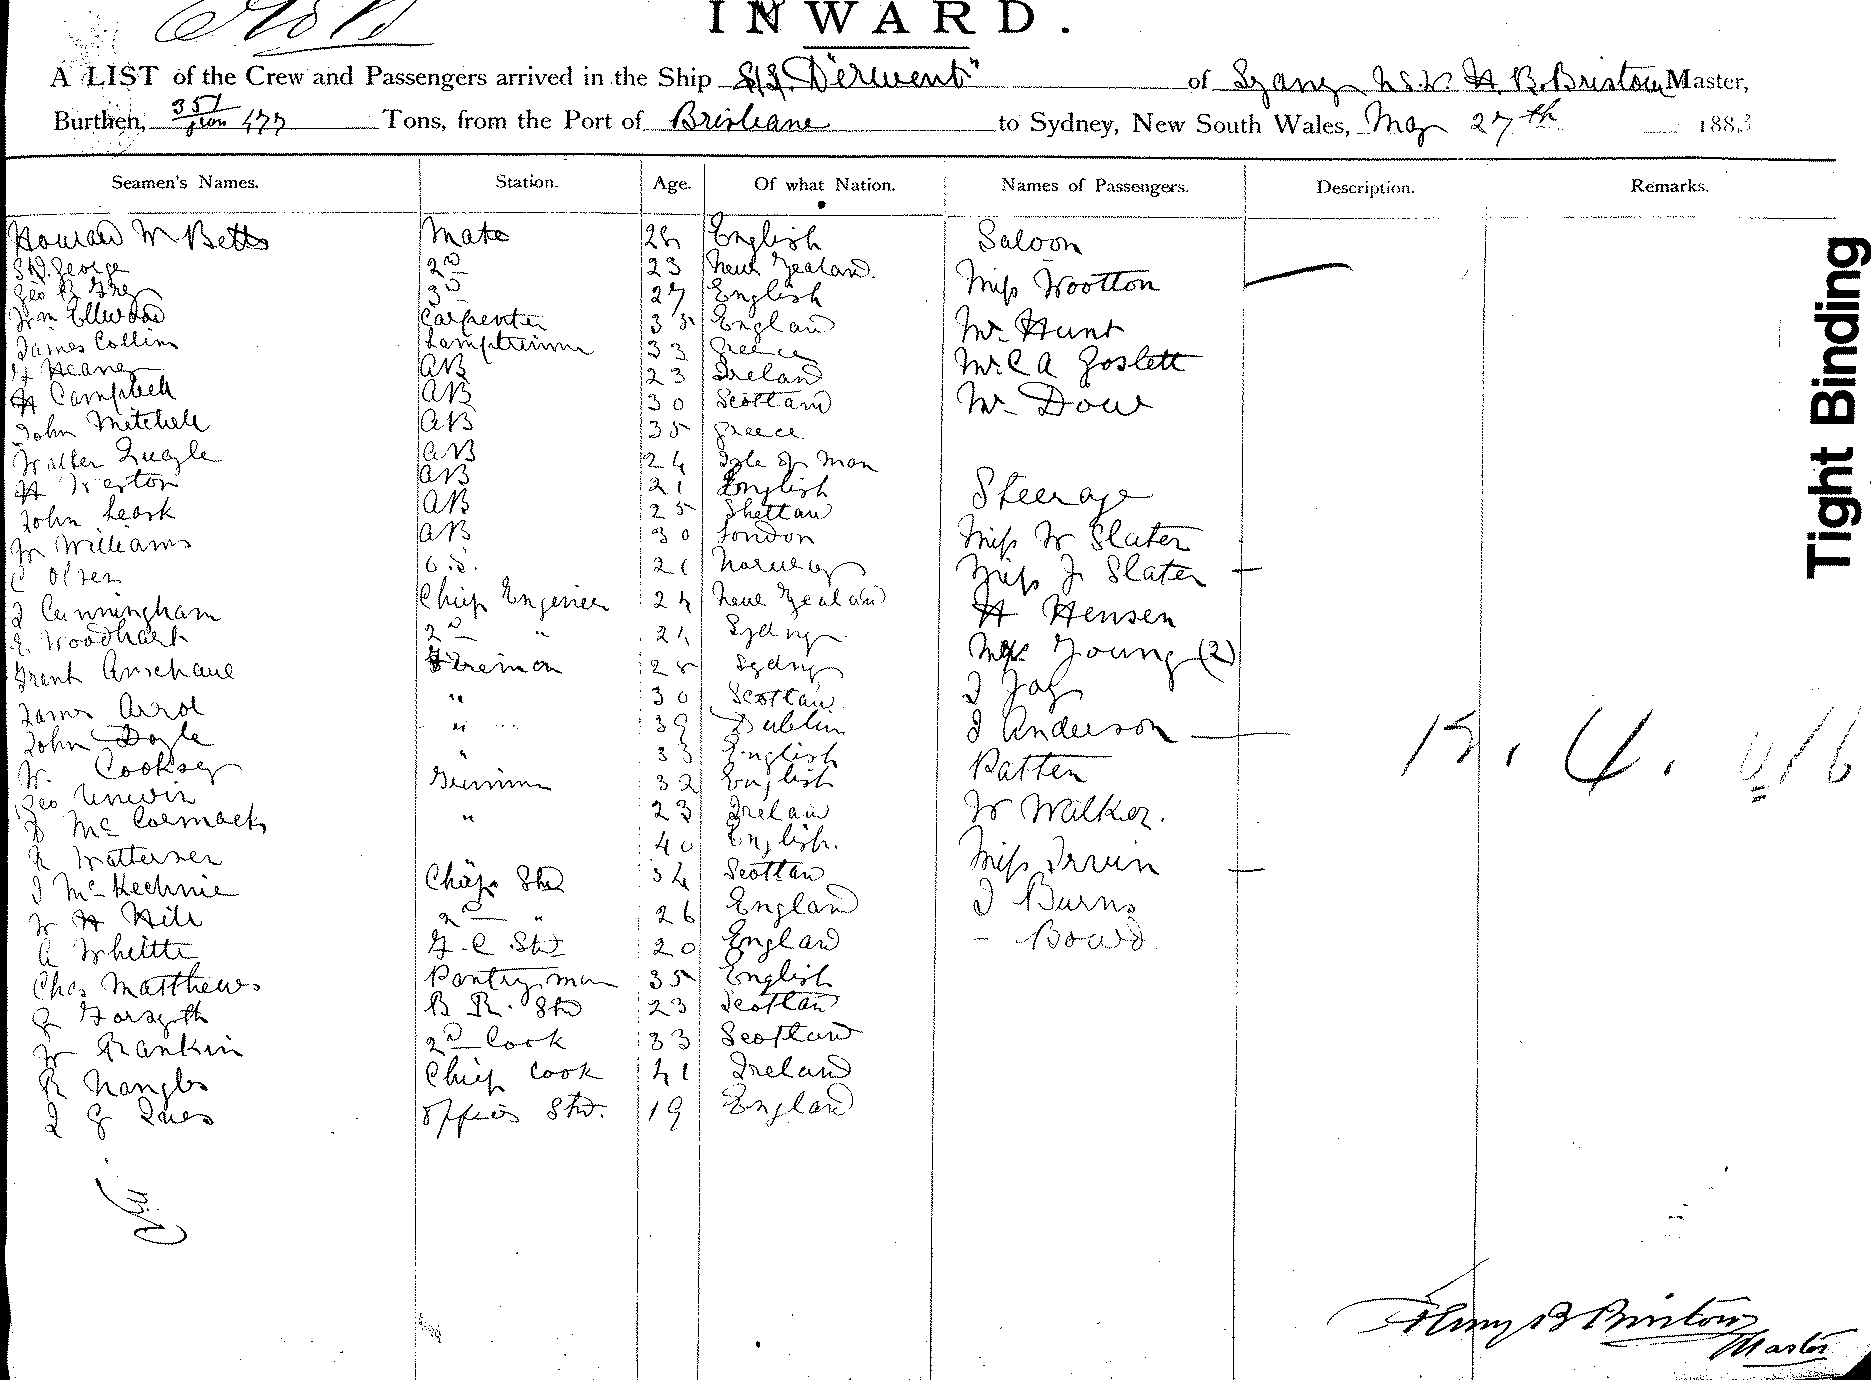 INWARD.
A LIST of the Crew and Passengers arrived in the Ship S.S. "Derwent" of Sydney N.S.W. H B. Bristow Master,
Burthen, 351 477 Tons, from the Port of Brisbane to Sydney, New South Wales, May 27th 1883
Seamen's Names. Station. Age. Of what Nation. Names of Passengers. Description. Remarks.
Howard W Betts Mate English Saloon
George 2D 23 New Zealand. Miss Wootton
Geo 3D 27 English
Wm Ellwood Carpenter 35 England Mr. Hunt
James Collins Lamptrimmer 33 Greece Mr C A Goslett
Heaney AB 23 Ireland
H Campbell AB 30 Scotland Mr. Dow
John Mitchell AB 35 Greece
Walter Quayle AB 24 Isle of Man
H Weston AB 21 English Steerage
John Leask AB 25 Shetland
W Williams AB 30 London Miss W Slater
C Olsen O.S. 21 Norway Miss J Slater
J Cunningham Chief Engineer 24 New Zealand H Hensen
E Woodhart 2D " Sydney Young (2)
Frank Fireman 25 Sydney J Jay
James Arrol " 30 Scotland
John Doyle " 39 Dublin J Anderson
W. Cooksey " 33 English Patten
Geo Unwin Trimmer 32 English
McCormack " 23 Ireland W Walker.
R Watterson 40 English. Miss Irvin
J McKechnie Chief Std 34 Scotland
W H Hill 2D " 26 England J Burns
A Whittle F.C Std 20 England - Bowd
Chas Matthews Pantryman 35 English
G Forsyth B R. Std 23 Scotland
W Rankin 2D Cook 33 Scotland
R Nangle Chief Cook 41 Ireland
J G Officers Std. 19 England
4.
Henry B Bristow
Master
Tight Binding